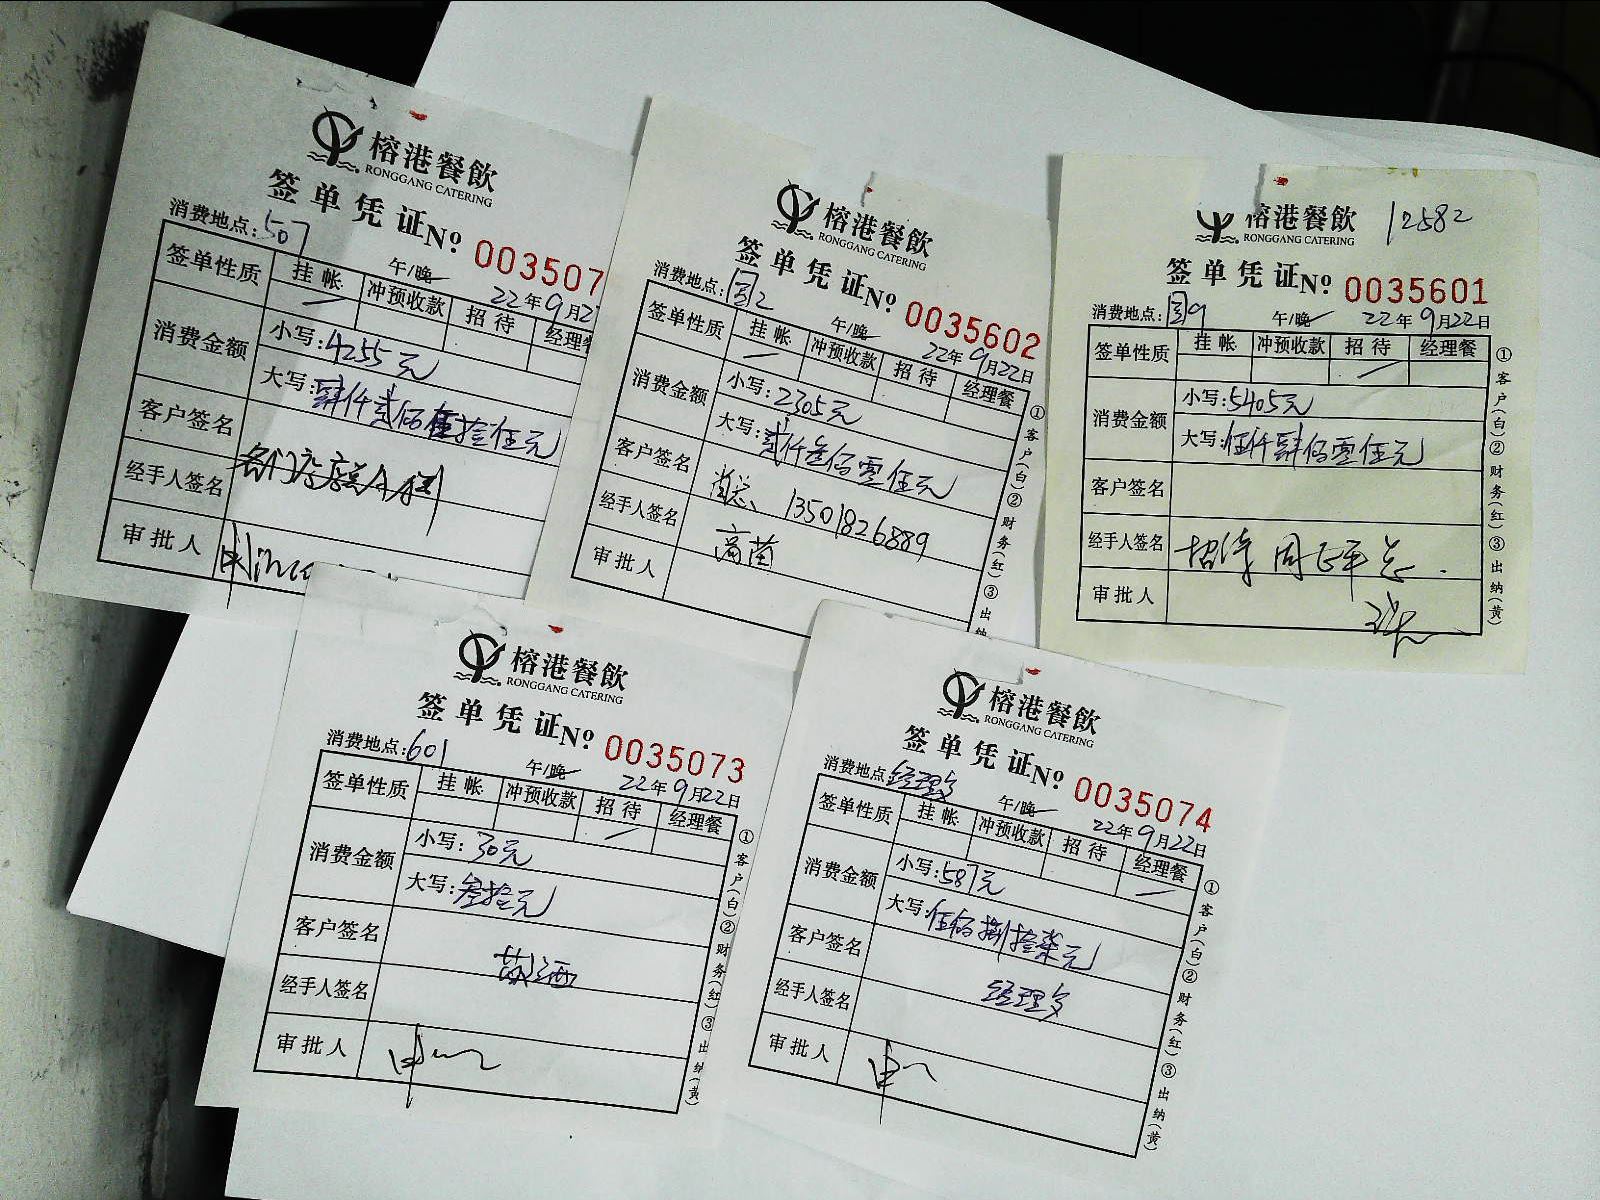 榕港餐飲
RONGGANG CATERING
签单凭证 No. 003507
消费地点:507 午/晚 22年9月2
签单性质 挂帐 冲预收款 招待 经理餐
消费金额 小写:4255元
大写:肆仟贰佰伍拾伍元
客户签名
经手人签名
审批人
榕港餐飲
RONGGANG CATERING
签单凭证 No. 0035602
消费地点: 午/晚 22年9月22日
签单性质 挂帐 冲预收款 招待 经理餐
消费金额 小写:2305元
大写:贰仟叁佰零伍元
客户签名 13501826889
经手人签名 高苗
审批人
①客户(白)②财务(红)③出纳
榕港餐飲 12582
RONGGANG CATERING
签单凭证 No. 0035601
消费地点: 午/晚 22年9月22日
签单性质 挂帐 冲预收款 招待 经理餐
消费金额 小写:5405元
大写:伍仟肆佰零伍元
客户签名
经手人签名 招待 周 总
审批人
①客户(白)②财务(红)③出纳(黄)
榕港餐飲
RONGGANG CATERING
签单凭证 No. 0035073
消费地点:601 午/晚 22年9月22日
签单性质 挂帐 冲预收款 招待 经理餐
消费金额 小写:30元
大写:叁拾元
客户签名
经手人签名
审批人
①客户(白)②财务(红)③出纳(黄)
榕港餐飲
RONGGANG CATERING
签单凭证 No. 0035074
消费地点:经理餐 午/晚 22年9月22日
签单性质 挂帐 冲预收款 招待 经理餐
消费金额 小写:587元
大写:伍佰捌拾柒元
客户签名
经手人签名 经理餐
审批人
①客户(白)②财务(红)③出纳(黄)